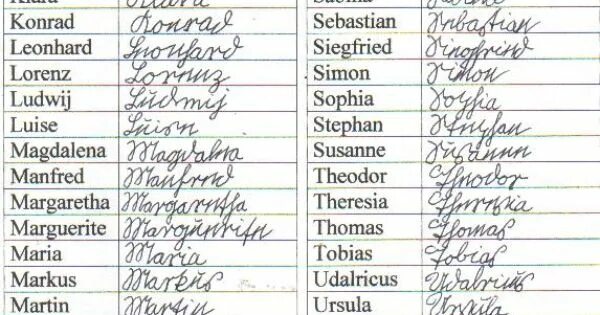 Klara Klara
Konrad Konrad
Leonhard Leonhard
Lorenz Lorenz
Ludwij Ludwij
Luise Luise
Magdalena Magdalena
Manfred Manfred
Margaretha Margaretha
Marguerite Marguerite
Maria Maria
Markus Markus
Martin Martin
Sabine Sabine
Sebastian Sebastian
Siegfried Siegfried
Simon Simon
Sophia Sophia
Stephan Stephan
Susanne Susanne
Theodor Theodor
Theresia Theresia
Thomas Thomas
Tobias Tobias
Udalricus Udalricus
Ursula Ursula